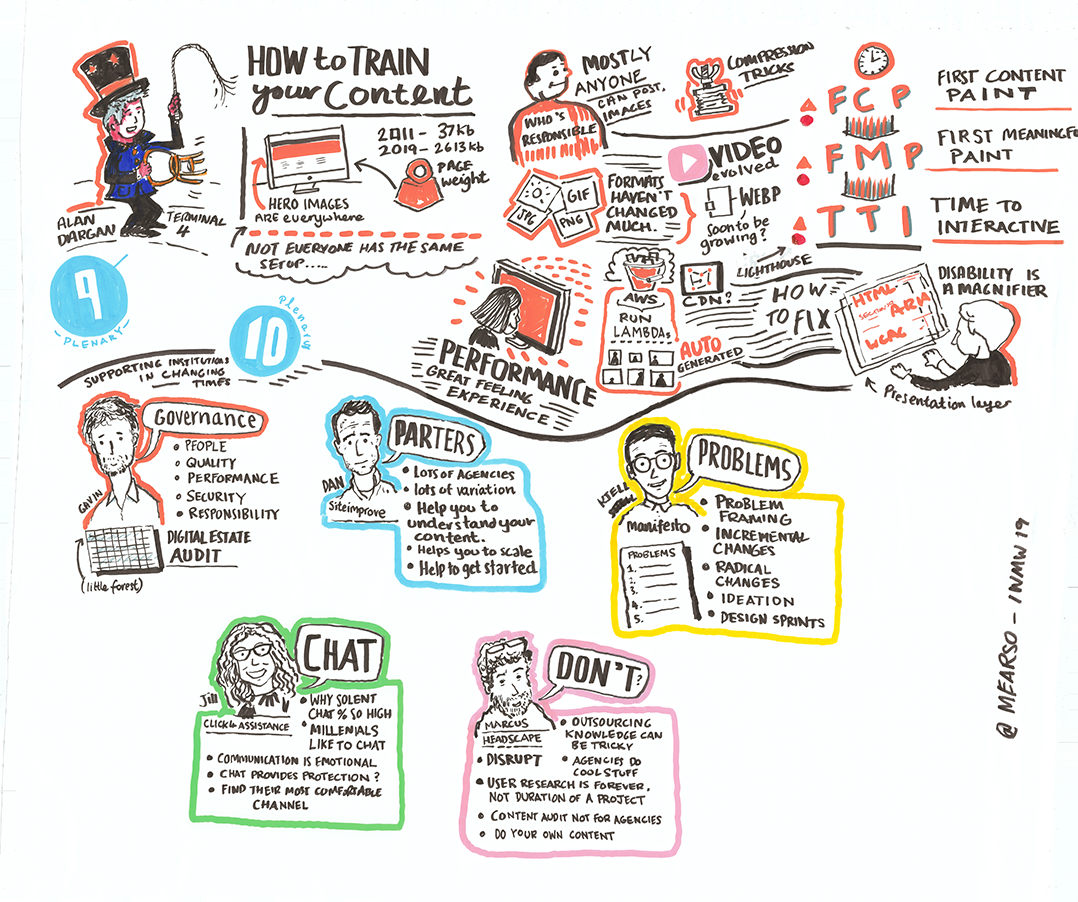 HOW to TRAIN
your Content
ALAN DARGAN
TERMINAL 4
2011 - 37kb
2019 - 2613kb
PAGE
Weight
HERO IMAGES
ARE everywhere
NOT EVERYONE HAS THE SAME
SETUP.....
MOSTLY
ANYONE
CAN POST,
IMAGES
WHO'S
RESPONSIBLE
COMPRESSION
TRICKS
JPG
GIF
PNG
FORMATS
HAVEN'T
CHANGED
MUCH.
VIDEO
evolved
WEBP
Soon to be
growing?
FCP
FIRST CONTENT
PAINT
FMP
FIRST MEANINGFU
PAINT
TTI
TIME TO
INTERACTIVE
LIGHTHOUSE
9
- PLENARY -
10
Plenary
PERFORMANCE
GREAT FEELING
EXPERIENCE
AWS
RUN
LAMBDAs
AUTO
GENERATED
CDN?
HOW
TO FIX
HTML
SECTIONS
ARIA
WCAG
DISABILITY IS
A MAGNIFIER
Presentation layer
SUPPORTING INSTITUTIONS
IN CHANGING
TIMES
GAVIN
GOVERNANCE
• PEOPLE
• QUALITY
• PERFORMANCE
• SECURITY
• RESPONSIBILITY
DIGITAL ESTATE
AUDIT
(little forest)
DAN
Siteimprove
PARTERS
• LOTS OF AGENCIES
• lots of variation
• Help you to
understand your
content.
• Helps you to scale
• Help to get started
KJELL
manifesto
PROBLEMS
PROBLEMS
1.
2.
3.
4.
5.
• PROBLEM
FRAMING
• INCREMENTAL
CHANGES
• RADICAL
CHANGES
• IDEATION
• DESIGN SPRINTS
Jill
CLICK4ASSISTANCE
CHAT
• WHY SOLENT
CHAT % SO HIGH
• MILLENIALS
LIKE TO CHAT
• COMMUNICATION IS EMOTIONAL
• CHAT PROVIDES PROTECTION?
• FIND THEIR MOST COMFORTABLE
CHANNEL
MARCUS
HEADSCAPE
DON'T?
• OUTSOURCING
KNOWLEDGE CAN
BE TRICKY
• DISRUPT
• AGENCIES DO
COOL STUFF
• USER RESEARCH IS FOREVER,
NOT DURATION OF A PROJECT
• CONTENT AUDIT NOT FOR AGENCIES
• DO YOUR OWN CONTENT
@ MEARSO - IWMW 19